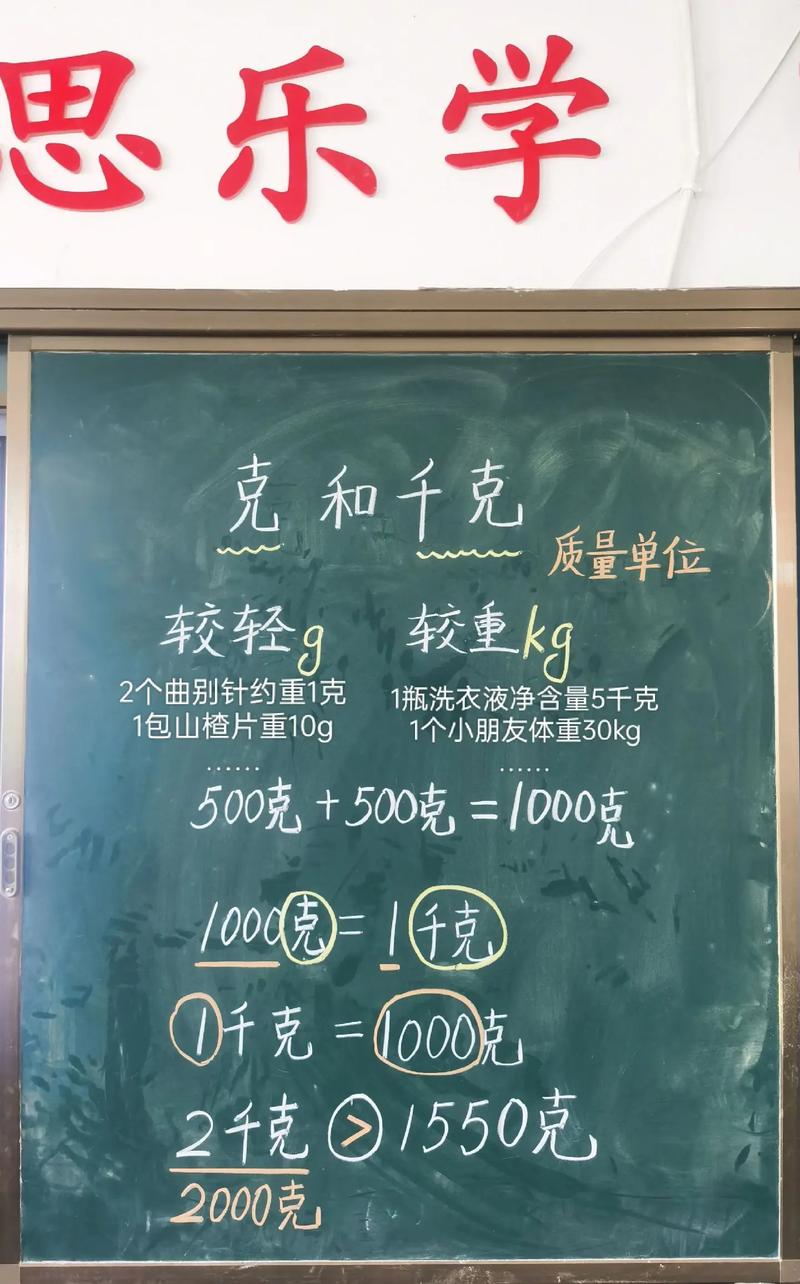 思乐学
克和千克
质量单位
较轻g 较重kg
2个曲别针约重1克
1包山楂片重10g
……
1瓶洗衣液净含量5千克
1个小朋友体重30kg
……
500克+500克=1000克
1000克=1千克
1千克=1000克
2千克>1550克
2000克